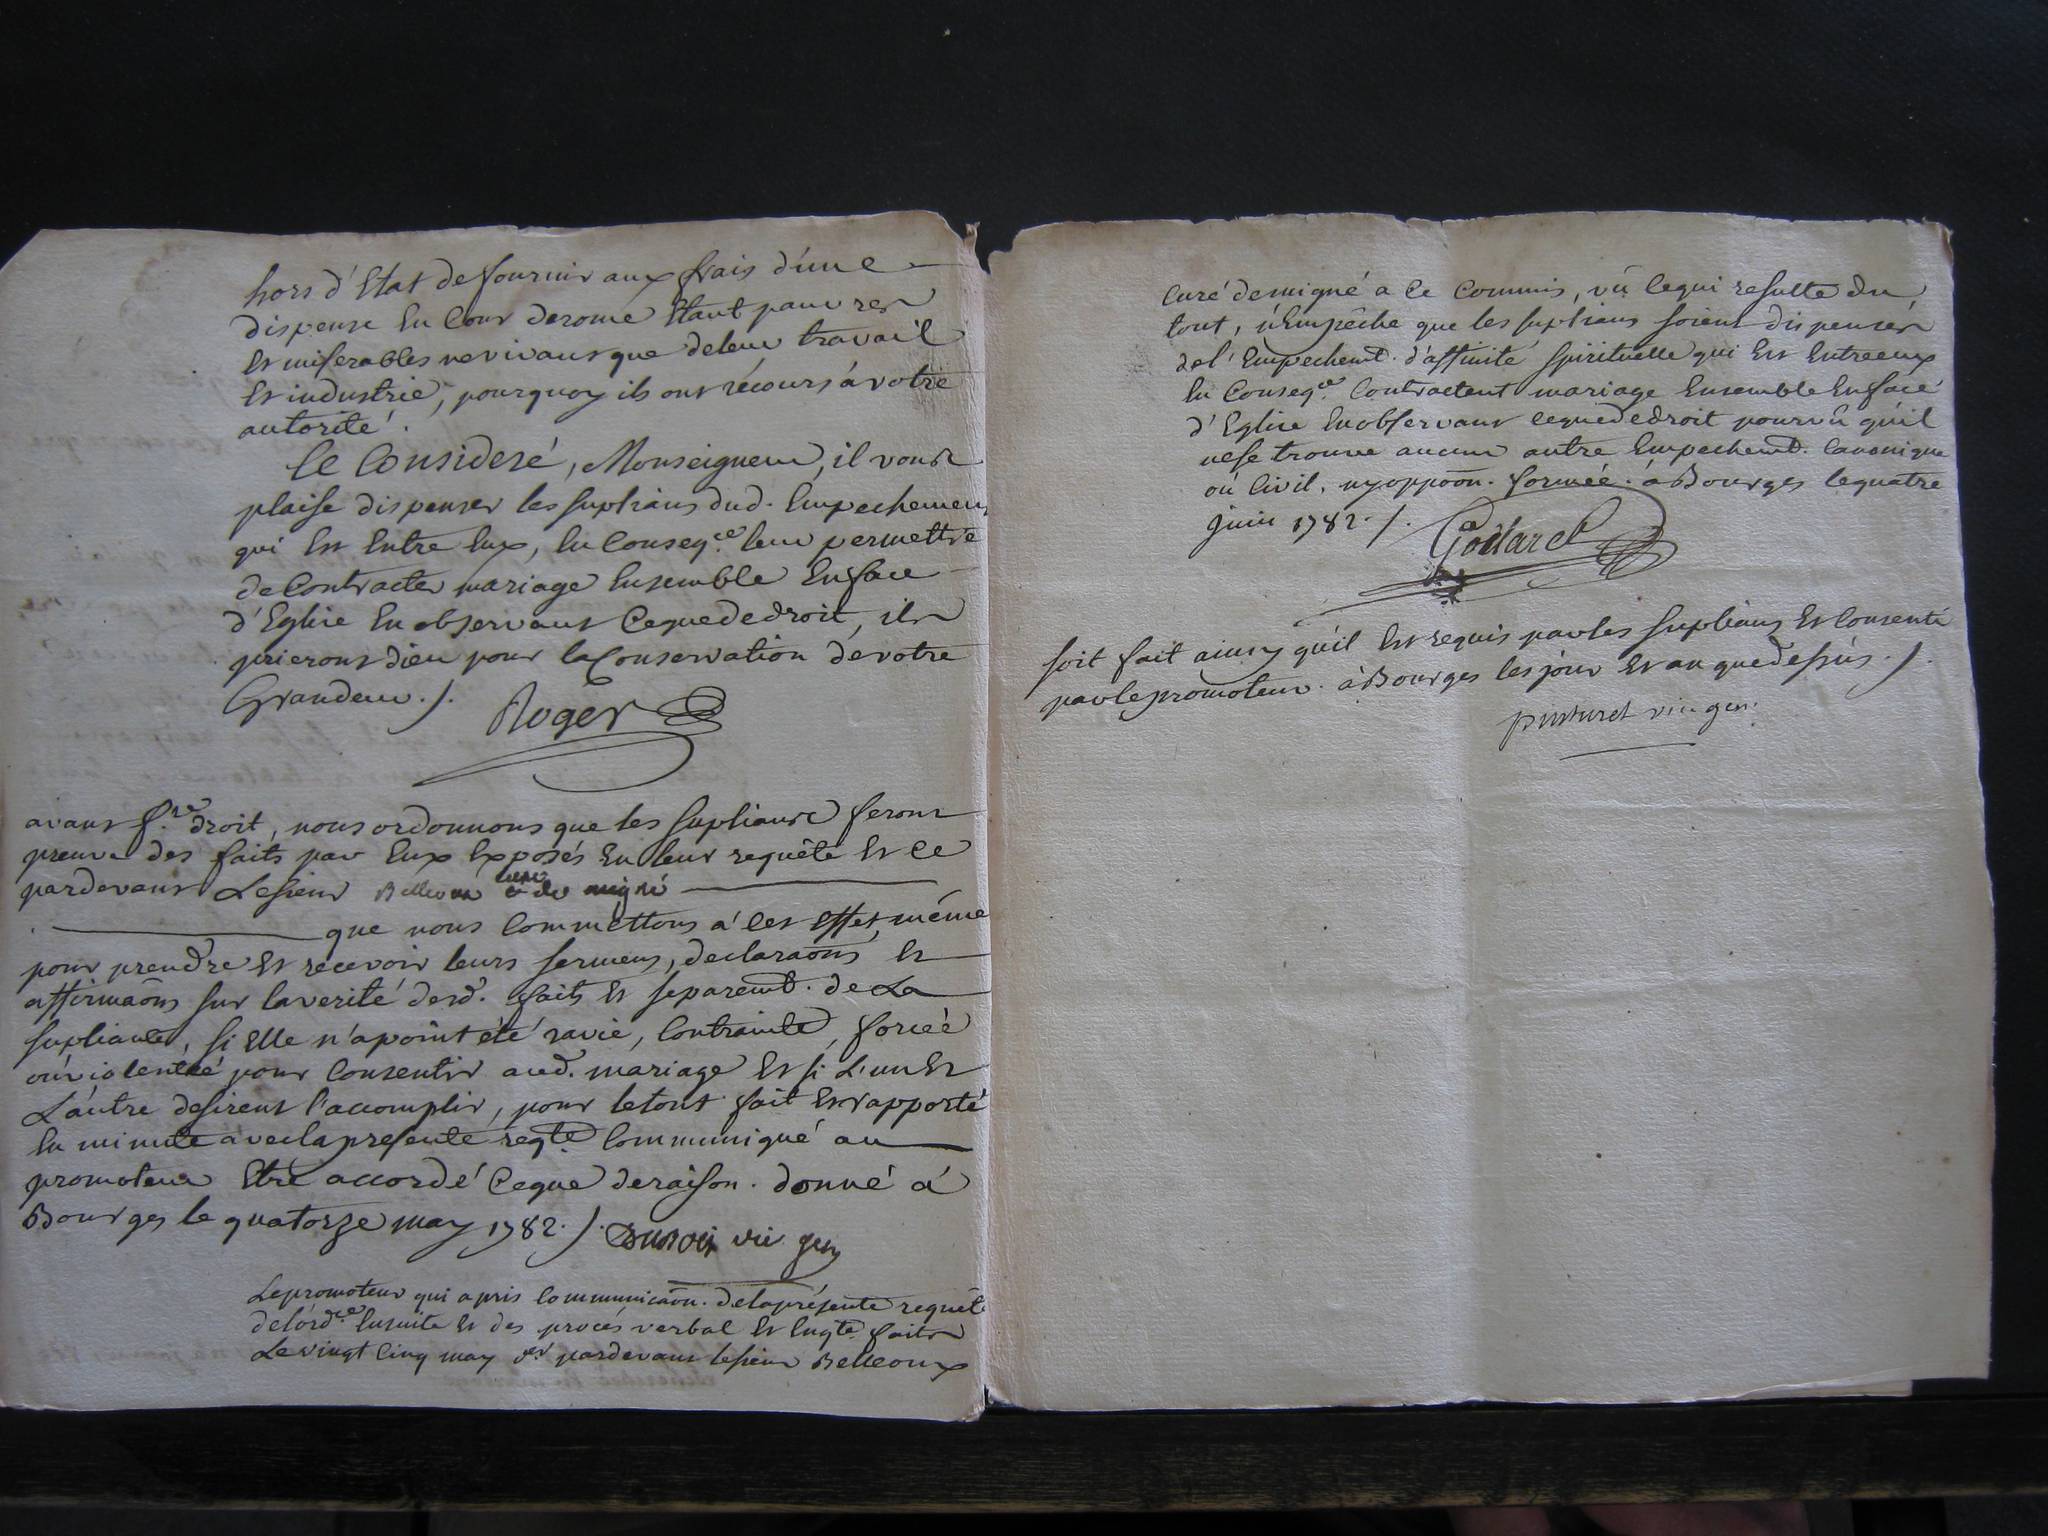 hors d'Etat de fournir aux frais d'une
dispense En Cour de rome Etant pauvres
Et miserables ne vivans que de leur travail
Et industrie, pourquoy ils ont récours á votre
autorité.
Ce Consideré, Monseigneur, il vous
plaise dispenser les suplians dud. Empechement
qui Est Entre Eux, En Conseq.ce leur permettre
de Contracter mariage Ensemble En face
d'Eglise En observant Ceque de droit, ils
prieront dieu pour la Conservation dé votre
Grandeur ./.
Roger
avant f.re droit, nous ordonnons que les supliants feront
preuve des faits par Eux Exposés En leur requête Et ce
pardevant Le sieur Belleoux curé de migné
que nous Commettons á Cet Effet, même
pour prendre Et recevoir leurs sermens, declaraõns Et
affirmaõns sur la verité desd. faits Et separemt. de La
supliante, si Elle n'a point été ravie, Contrainte, forcée
oú violentée pour Consentir aud. mariage Et si L'un Et
L'autre desirent l'accomplir, pour le tout fait Et rapporté
En minute avec la presente reqte. Communiqué au
promoteur Etre accordé Ceque de raison. donné á
Bourges le quatorze may 1782 ./. Dubois vic gen
Le promoteur qui a pris Communicaõn. de la présente requête
de l'ord.ce Ensuite Et des procés verbal Et Enqte. faits
Le vingt Cinq may der. pardevant le sieur Belleoux
Curé de migné a Ce Commis, vû Cequi resulte du
tout, n'Empêche que les suplians soient dispensés
de l'Empechemt. d'affinité spirituelle qui Est Entre eux
En Conseq.ce Contractent mariage Ensemble En face
d'Eglise En observant ceque de droit pourvû qu'il
ne se trouve aucun autre Empechemt. Canonique
oú Civil, ny oppoõn. formée. á Bourges le quatre
juin 1782 ./. Godard
soit fait ainsy qu'il Est requis par les suplians Et Consenti
par le promoteur. á Bourges les jour Et an que dessus ./.
vic gen.